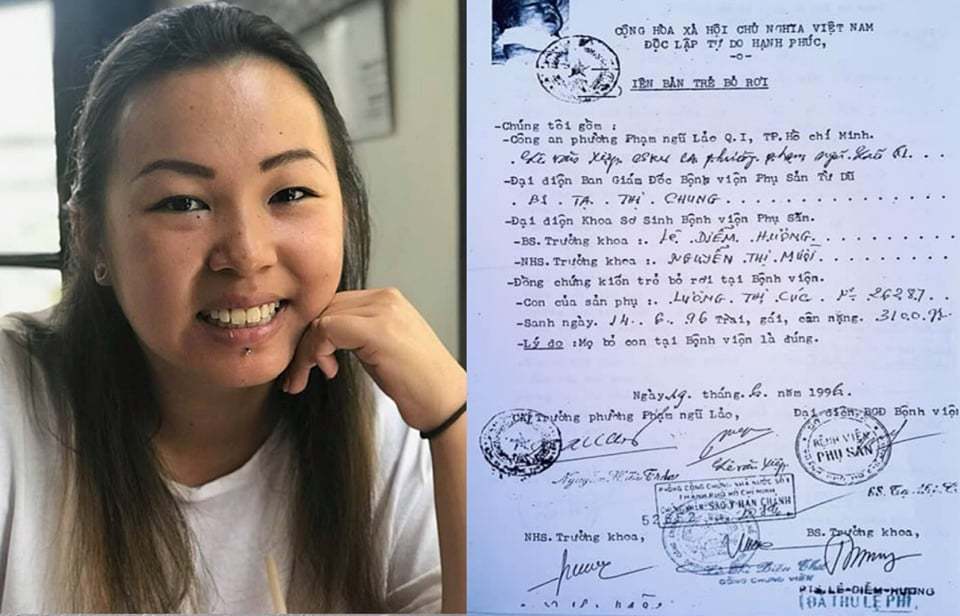 CỘNG HÒA XÃ HỘI CHỦ NGHĨA VIỆT NAM
ĐỘC LẬP TỰ DO HẠNH PHÚC,
-o-
IÊN BẢN TRẺ BỎ RƠI
-Chúng tôi gồm :
-Công an phường Phạm ngũ Lão Q.I, TP.Hồ chí Minh.
phường phạm ngũ Lão Q1
-Đại diện Ban Giám Đốc Bệnh viện Phụ Sản Từ Dũ
. BS TẠ THỊ CHUNG
-Đại diện Khoa Sơ Sinh Bệnh viện Phụ Sản.
-BS.Trưởng khoa : LÊ DIỄM HƯƠNG
-NHS.Trưởng khoa : NGUYỄN THỊ MUỘI
-Đồng chứng kiến trẻ bỏ rơi tại Bệnh viện.
-Con của sản phụ : LƯƠNG THỊ CÚC Nº 26287
-Sanh ngày. 14. 6. 96 Trai, gái, cân nặng. 3100
-Lý do :Mẹ bỏ con tại Bệnh viện là đúng.
Ngày 19 tháng 6 năm 1996
CA Trưởng phường Phạm ngũ Lão, Đại diện BGĐ Bệnh viện
BỆNH VIỆN
PHỤ SẢN
Lê văn Hiệp
PHÒNG CÔNG CHỨNG NHÀ NƯỚC SỐ 1
THÀNH PHỐ HỒ CHÍ MINH
SAO Y BẢN CHÁNH
NHS.Trưởng khoa, BS.Trưởng khoa,
CÔNG CHỨNG VIÊN
LÊ-DIỄM-HƯƠNG
ĐÃ THU LỆ PHÍ